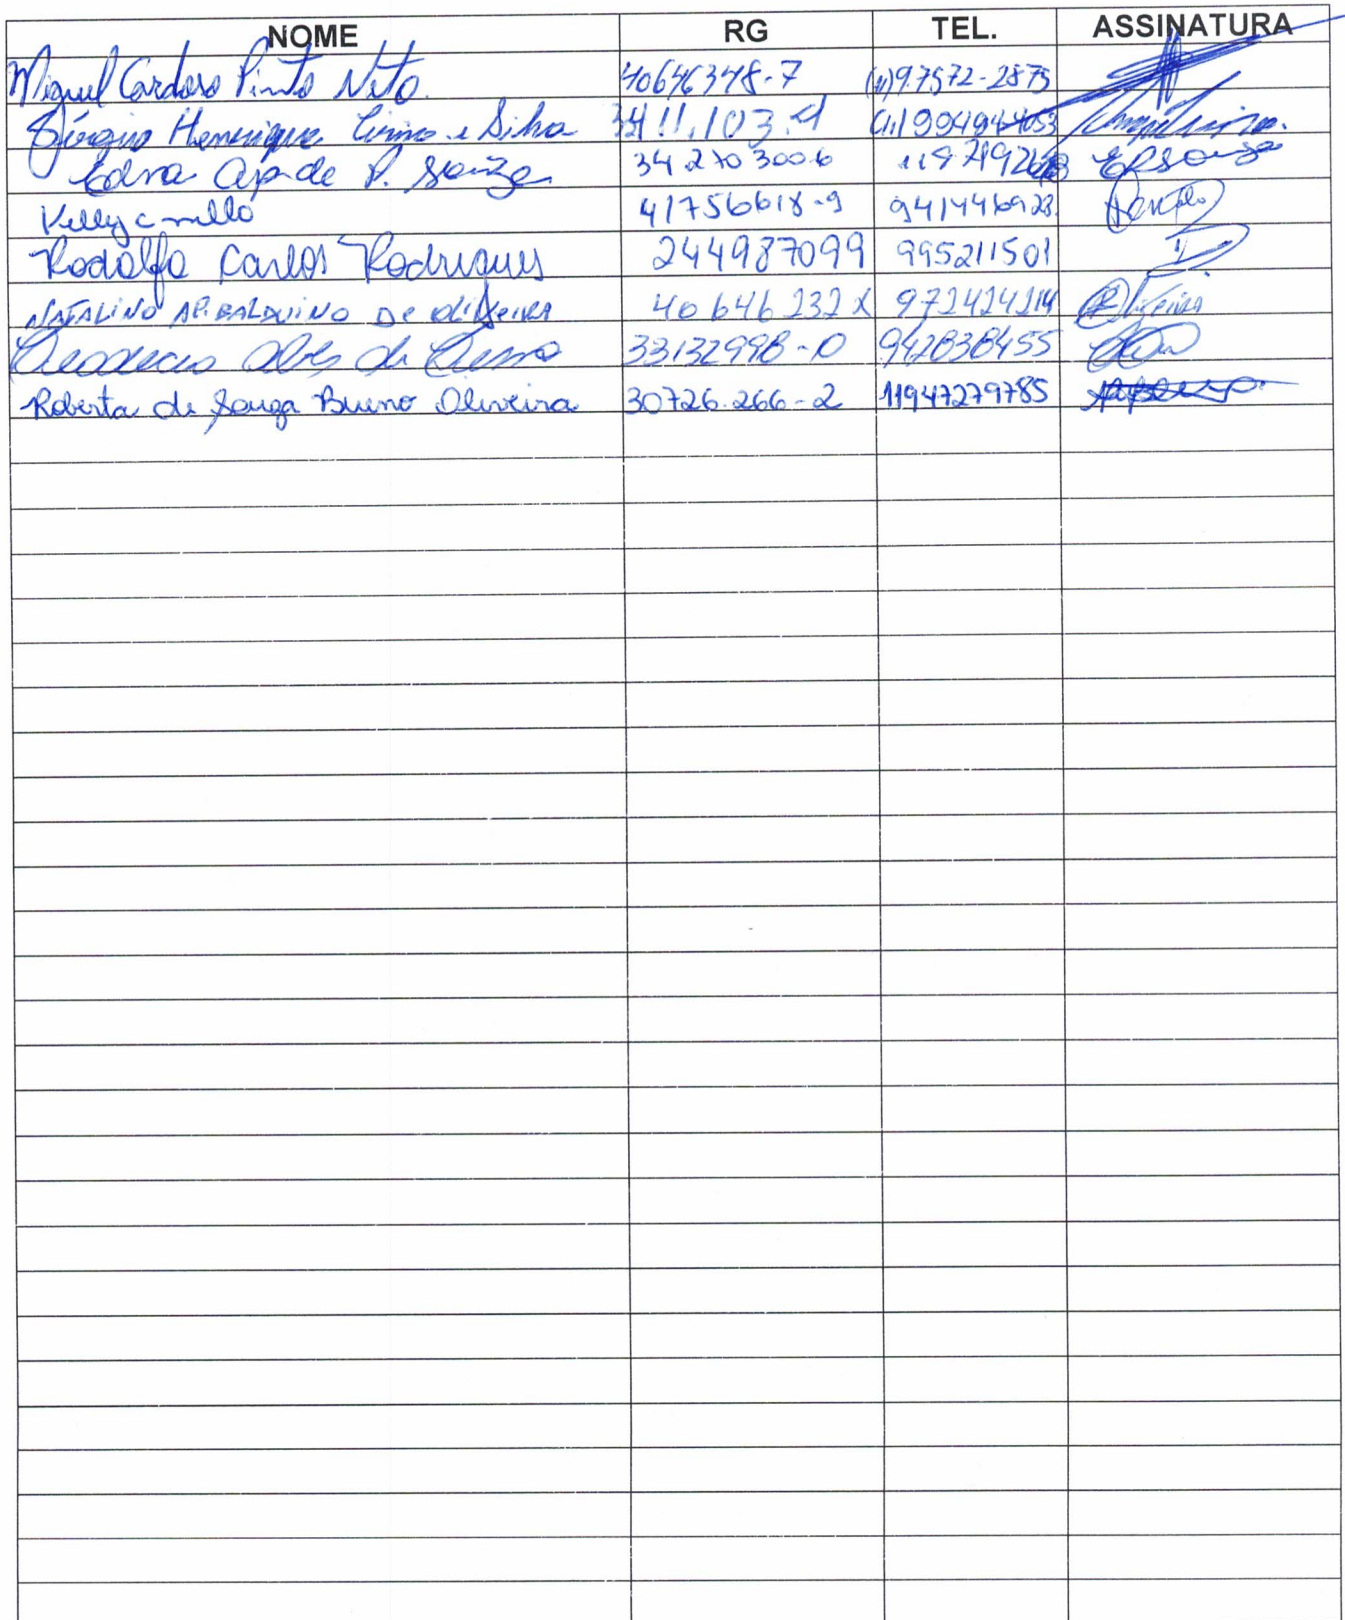 NOME RG TEL. ASSINATURA
Miguel Cardoso Pinto Neto. 40646348-7 (11)9.7572-2875
Sérgio Henrique Cirino e Silva 3411.103.4 (11)994944053
Edna Ap. de P. Souza 34 270 300 6 EPSouza
Kelly Camillo 41756618-9 941446923
Rodolfo Carlos Rodrigues 244987099 995211501
NATALINO AP. BALDUINO DE OLIVEIRA 40 646 232 X 972424214 Oliveira
33132998-0 942838455
Roberta de Souza Bueno Oliveira 30726.266-2 11947279785